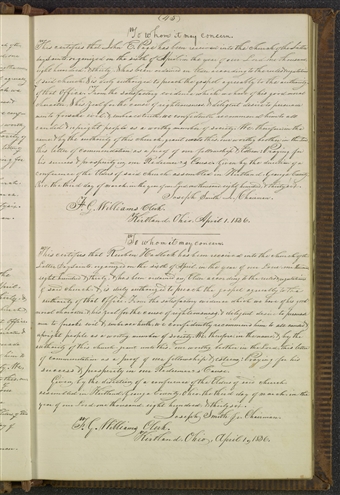 (45)
To whom it may concern.
This certifies that John E. Page has been received into the church of the Latter
day saints organized on the sixth of April in the year of our Lord one thousand
eight hundred & thirty & has been ordained an Elder according to the rules & regulations
of said church & is duly authorized to preach the gospel agreeably to the authority
of that Office. From the satisfactory evidence which we have of his good moral
character & his zeal for the cause of righteousness & diligent desire to persuade
men to forsake evil & embrace truth we confidently recommend him to all
candid & upright people as a worthy member of society. We therefore in the
name & by the authority of this church grant unto this our worthy brother in the Lord
this letter of commendation as a proof of our fellowship & esteem: Praying for
his success & prosperity in our Redeemer's Cause. Given by the direction of a
conference of the Elders of said church assembled in Kirtland, Geauga County,
Ohio the third day of march in the year of our Lord one thousand eight hundred & thirty six.
Joseph Smith Jr. Chairman.
F. G. Williams Clerk.
Kirtland, Ohio, April 1, 1836.
To whom it may concern
This certifies that Reuben Hedlock has been received into the church of the
Latter Day Saints organized on the sixth of April, in the year of our Lord one thousand
eight hundred & thirty & has been ordained an Elder according to the rules & regulations
of said church, & is duly authorized to preach the gospel agreeably to the
authority of that Office. From the satisfactory evidence which we have of his good
moral character & his zeal for the cause of righteousness & diligent desire to persuade
men to forsake evil & embrace truth, we confidently recommend him to all candid &
upright people as a worthy member of society. We therefore in the name & by the
authority of this church grant unto this our worthy brother in the Lord this letter
of commendation as a proof of our fellowship & esteem: Praying for his
success & prosperity in our Redeemer's Cause.
Given by the direction of a conference of the Elders of said church
assembled in Kirtland, Geauga County, Ohio, the third day of march in the
year of our Lord one thousand, eight hundred, & thirty six.
Joseph Smith Jr. Chairman
F. G. Williams Clerk.
Kirtland, Ohio, April 1, 1836.